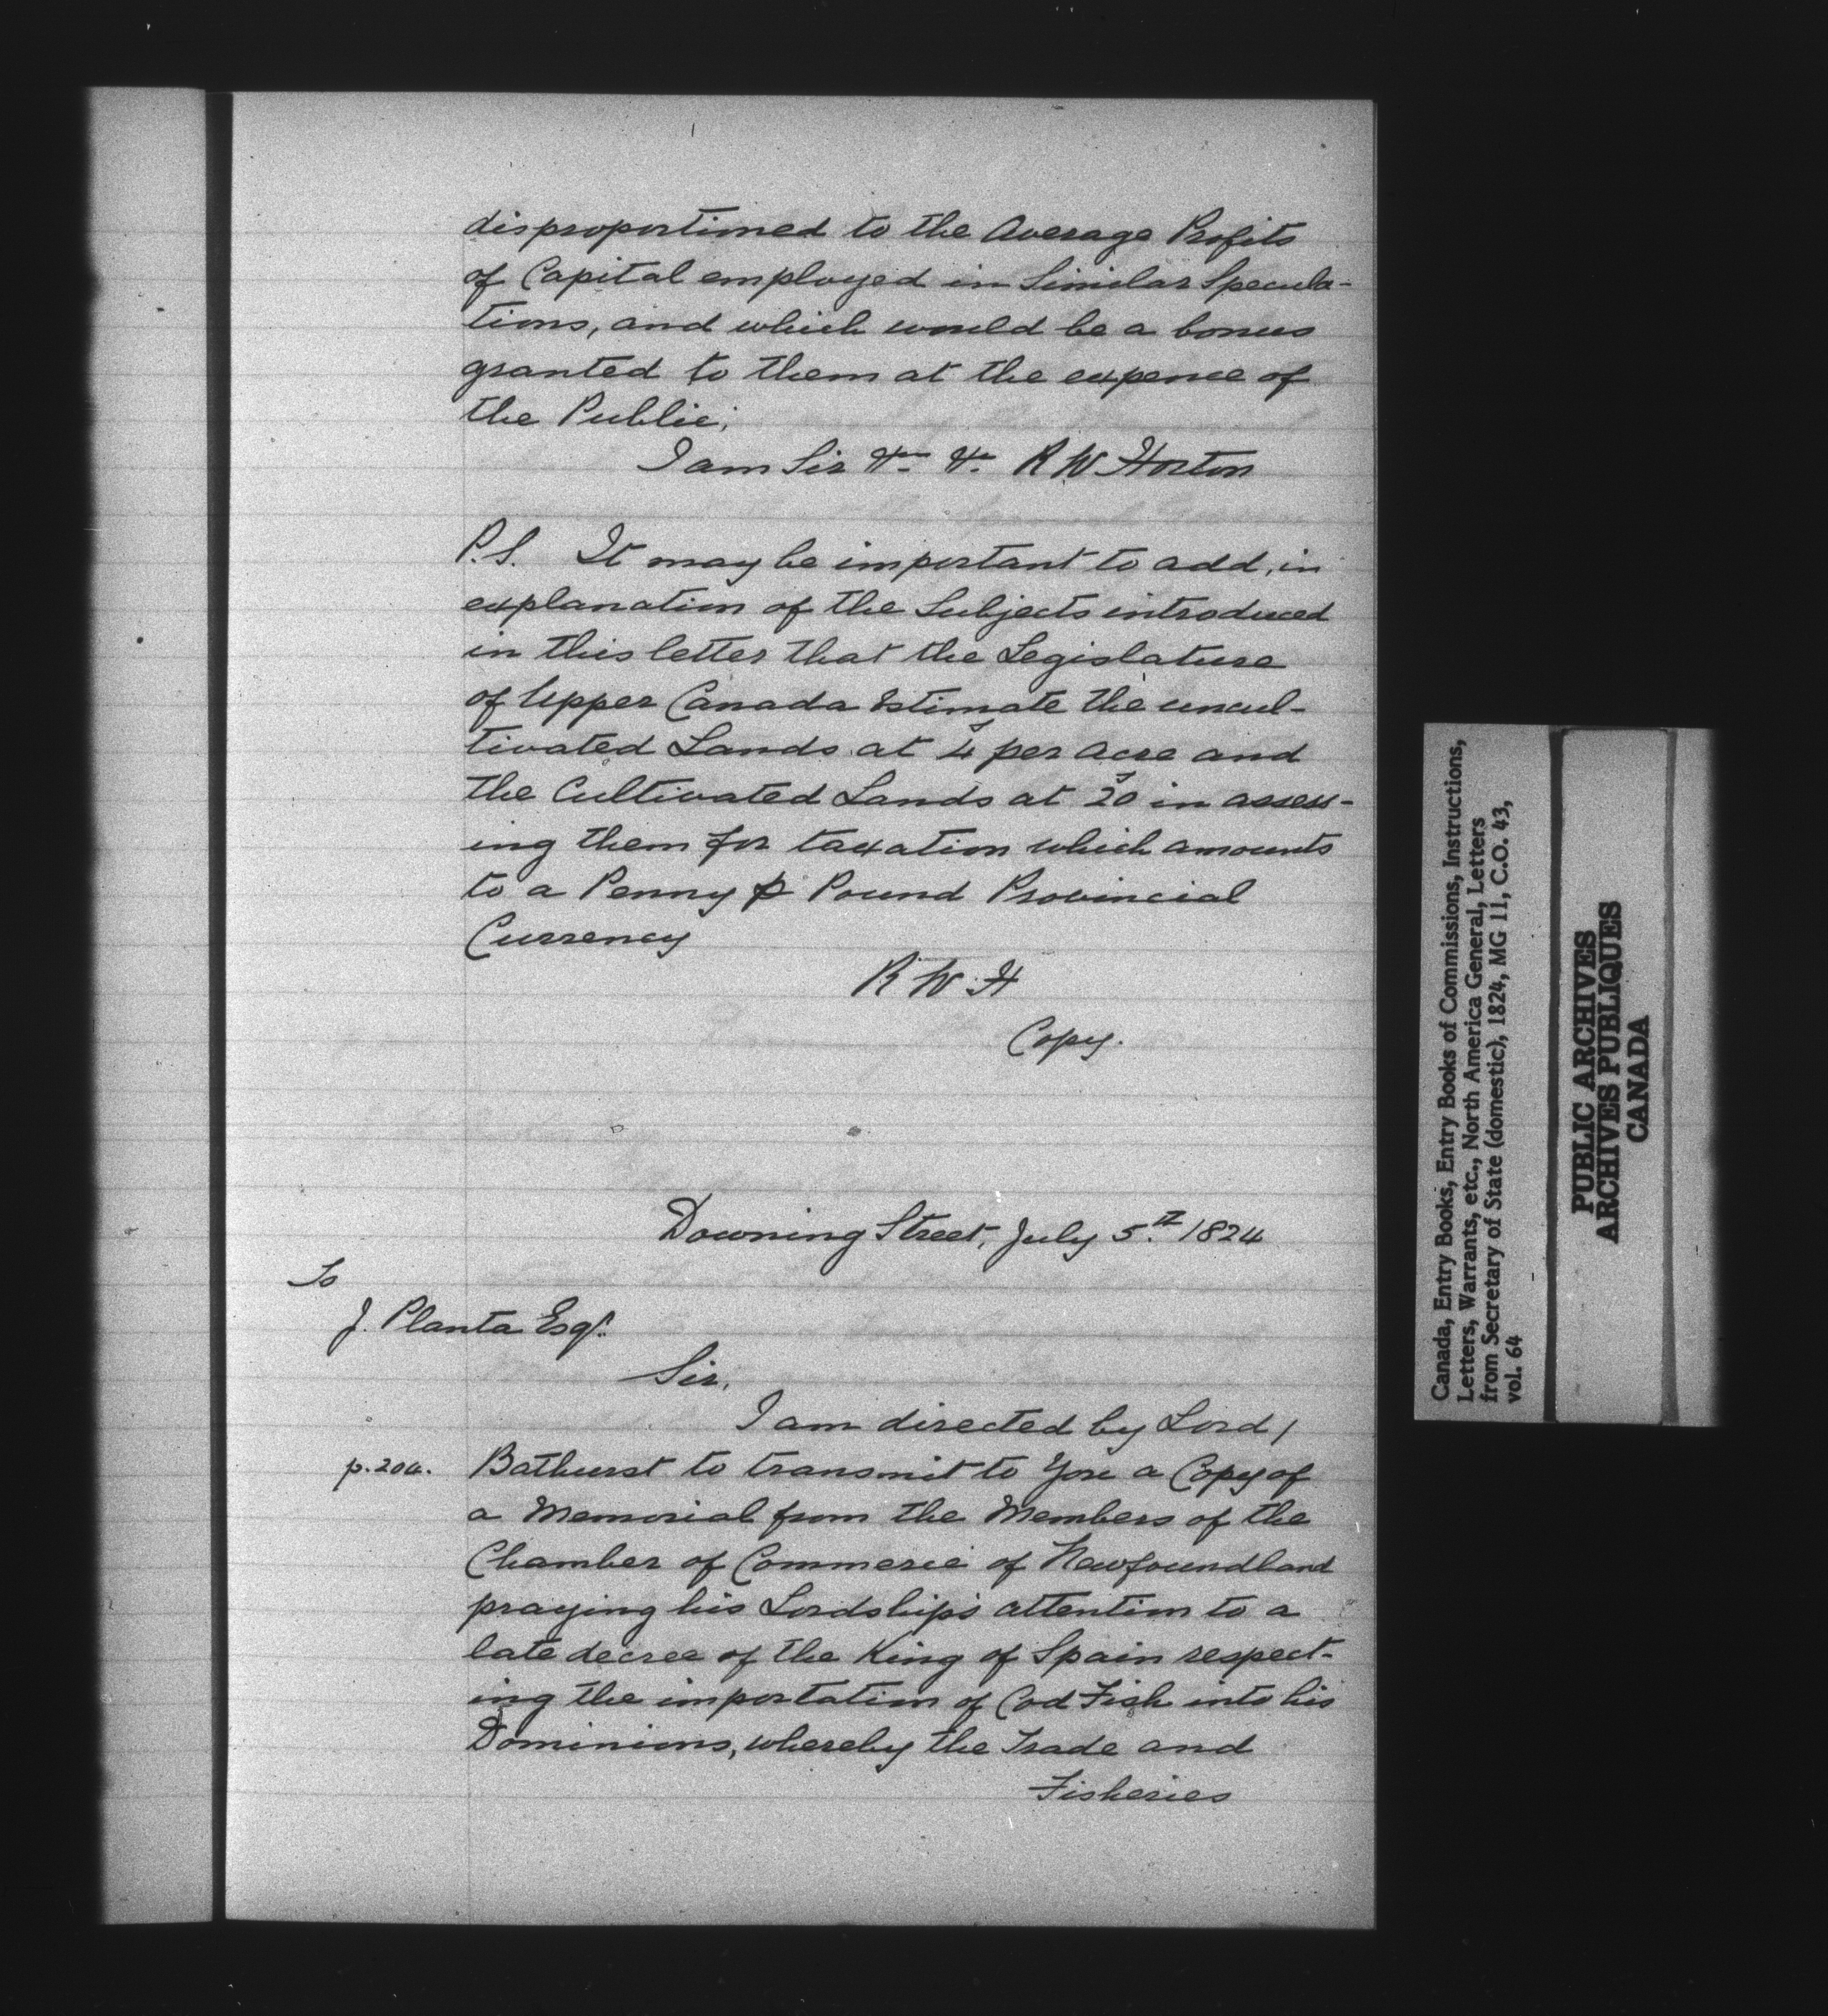 disproportioned to the Average Profits
of Capital employed in Similar Specula-
tions, and which would be a bonus
granted to them at the expence of
the Public;
I am Sir &c &c R W Horton
P.S. It may be important to add, in
explanation of the Subjects introduced
in this letter that the Legislature
of Upper Canada Estimate the uncul-
tivated Lands at 4s per Acre and
the Cultivated Lands at 20s in assess-
ing them for taxation which amounts
to a Penny p Pound Provincial
Currency
R W H
Copy.
Downing Street, July 5th 1824
To
J. Planta Esqr.
Sir,
I am directed by Lord
p. 204. Bathurst to transmit to You a Copy of
a Memorial from the Members of the
Chamber of Commerce of Newfoundland
praying his Lordship's attention to a
late decree of the King of Spain respect-
ing the importation of Cod Fish into his
Dominions, whereby the Trade and
Fisheries
Canada, Entry Books, Entry Books of Commissions, Instructions,
Letters, Warrants, etc., North America General, Letters
from Secretary of State (domestic), 1824, MG 11, C.O. 43,
vol. 64
PUBLIC ARCHIVES
ARCHIVES PUBLIQUES
CANADA